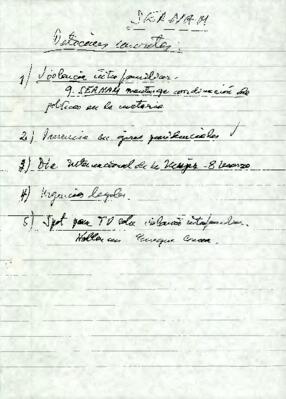 SERNAM
Peticiones concretas.
1) Violencia intrafamiliar.
q. SERNAM mantenga coordinación de
políticas en la materia
2) Presencia en giras presidenciales
3) Día internacional de la Mujer - 8 marzo
4) Urgencias legales.
5) Spot para TV sobre violencia intrafamiliar.
Hablar con Enrique Correa.